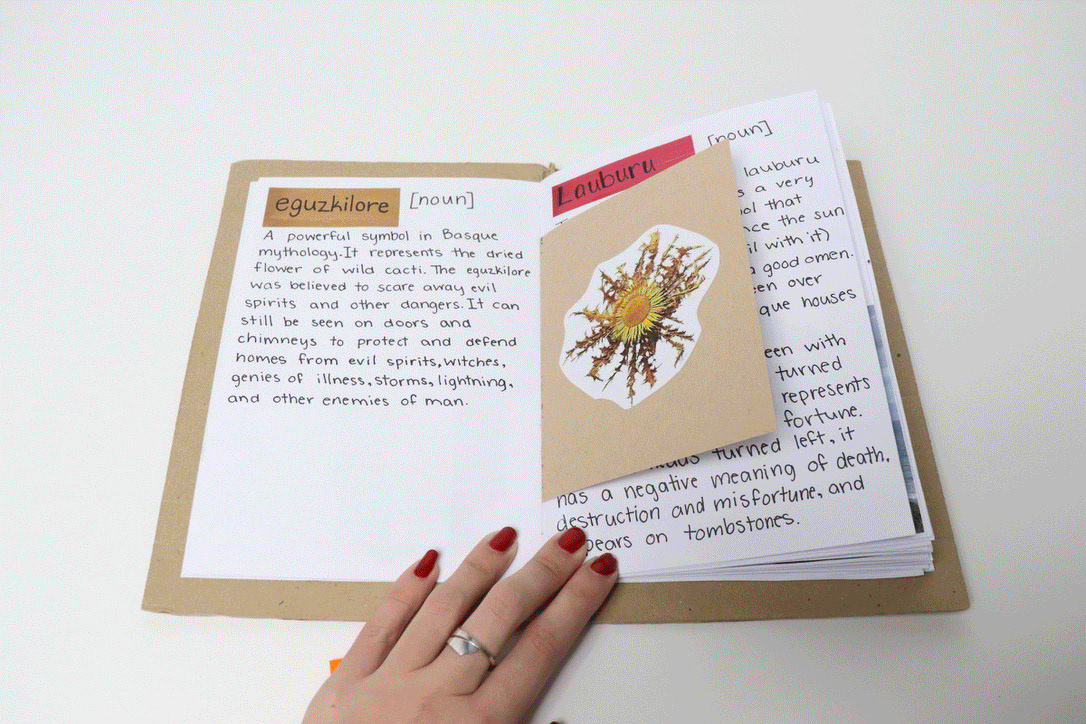 eguzkilore [noun]
A powerful symbol in Basque
mythology. It represents the dried
flower of wild cacti. The eguzkilore
was believed to scare away evil
spirits and other dangers. It can
still be seen on doors and
chimneys to protect and defend
homes from evil spirits, witches,
genies of illness, storms, lightning,
and other enemies of man.
Lauburu [noun]
lauburu
a very
that
the sun
with it)
good omen.
over
houses
with
turned
represents
fortune.
turned left, it
has a negative meaning of death,
destruction and misfortune, and
on tombstones.